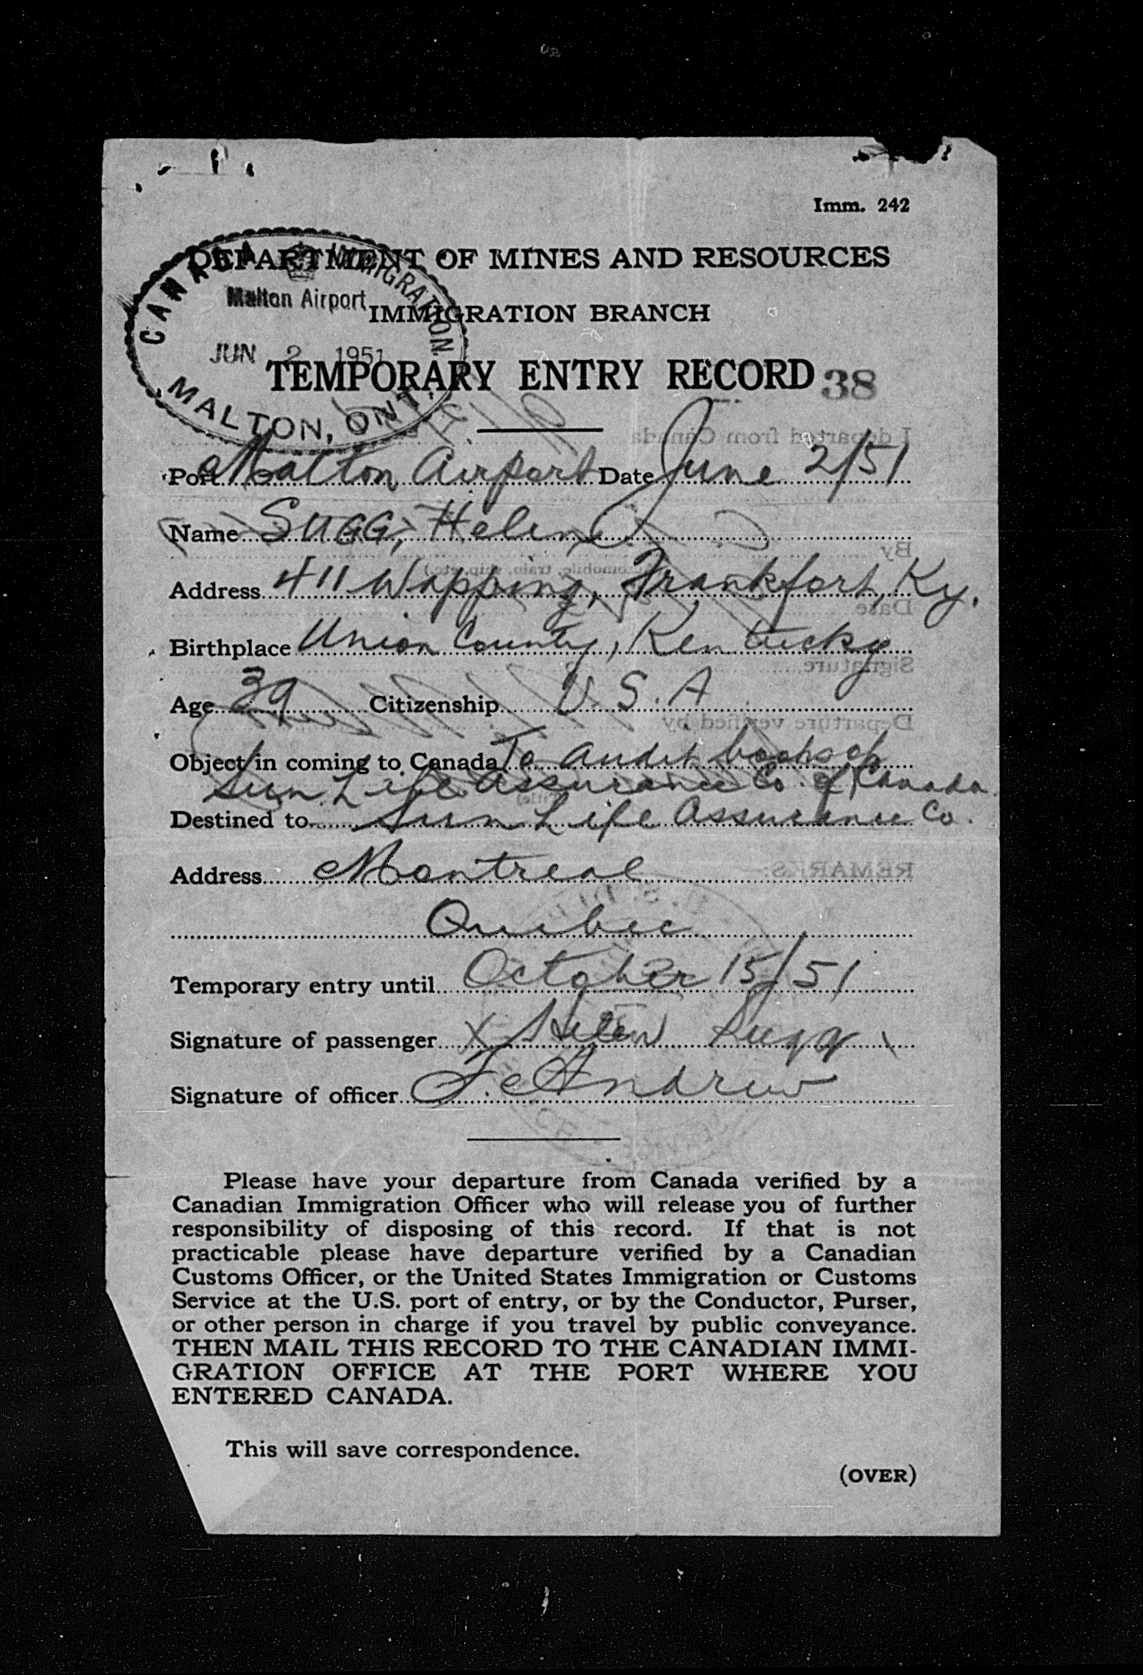 Imm. 242
DEPARTMENT OF MINES AND RESOURCES
IMMIGRATION BRANCH
TEMPORARY ENTRY RECORD 38
CANADA IMMIGRATION
Malton Airport
JUN 2 1951
MALTON, ONT.
Port Malton Airport Date June 2/51
Name SUGG, Helen
Address 411 Wapping, Frankfort, Ky.
Birthplace Union County, Kentucky
Age 39 Citizenship U.S.A
Object in coming to Canada To audit books of
Sun Life Assurance Co. of Canada.
Destined to Sun Life Assurance Co.
Address Montreal
Quebec
Temporary entry until October 15/51
Signature of passenger X Helen Sugg
Signature of officer F. Andrew
Please have your departure from Canada verified by a
Canadian Immigration Officer who will release you of further
responsibility of disposing of this record. If that is not
practicable please have departure verified by a Canadian
Customs Officer, or the United States Immigration or Customs
Service at the U.S. port of entry, or by the Conductor, Purser,
or other person in charge if you travel by public conveyance.
THEN MAIL THIS RECORD TO THE CANADIAN IMMI-
GRATION OFFICE AT THE PORT WHERE YOU
ENTERED CANADA.
This will save correspondence.
(OVER)